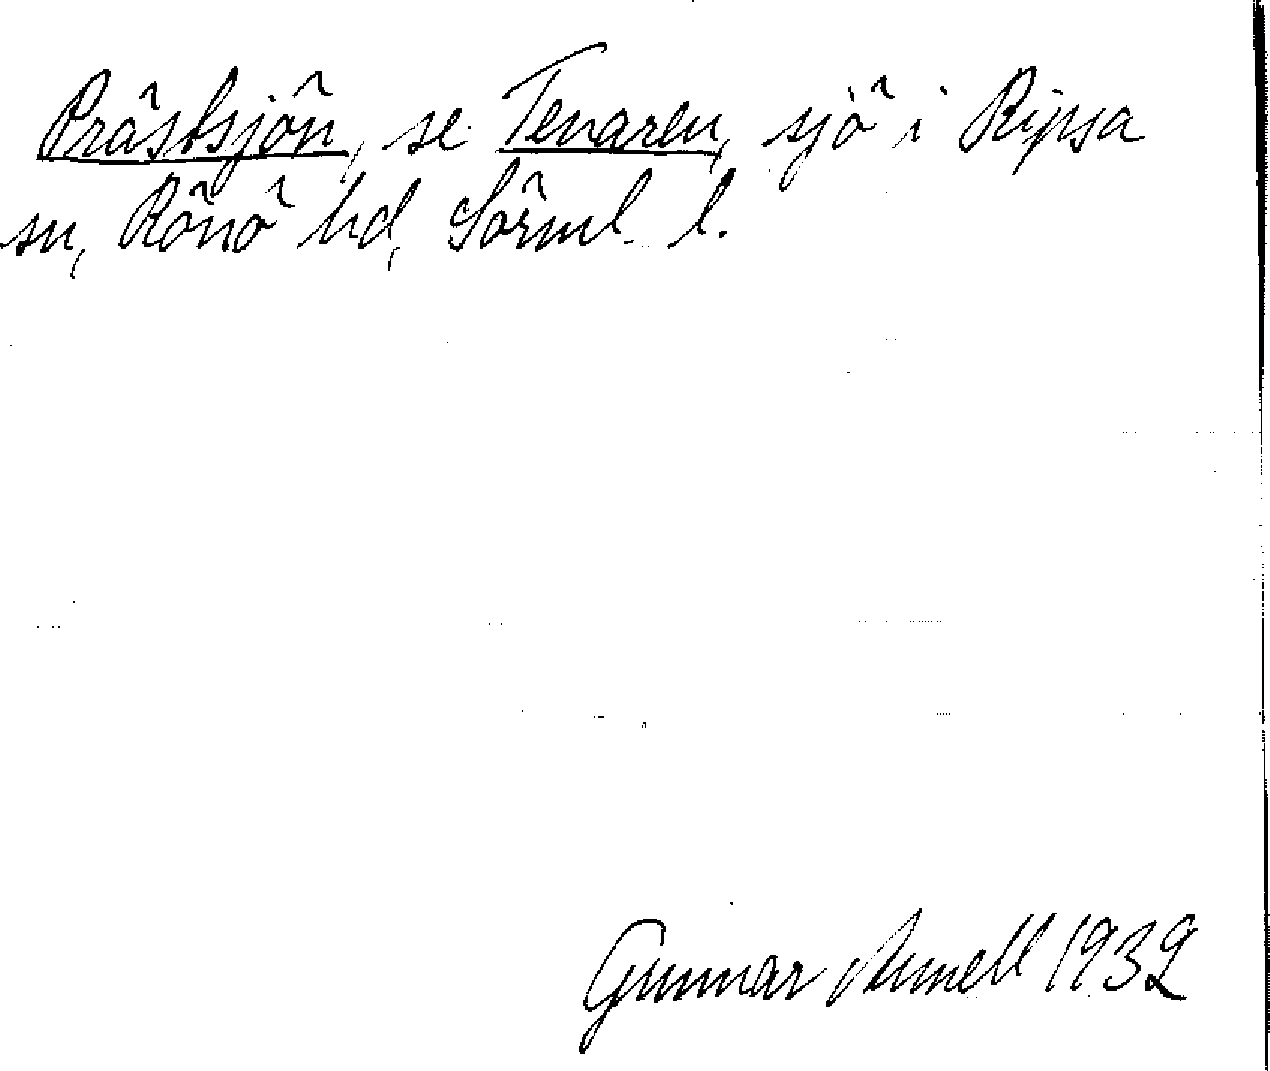 Prästsjön, se Tenaren, sjö i Ripsa
sn, Rönö hd, Sörml. l.
Gunnar Arnell 1932